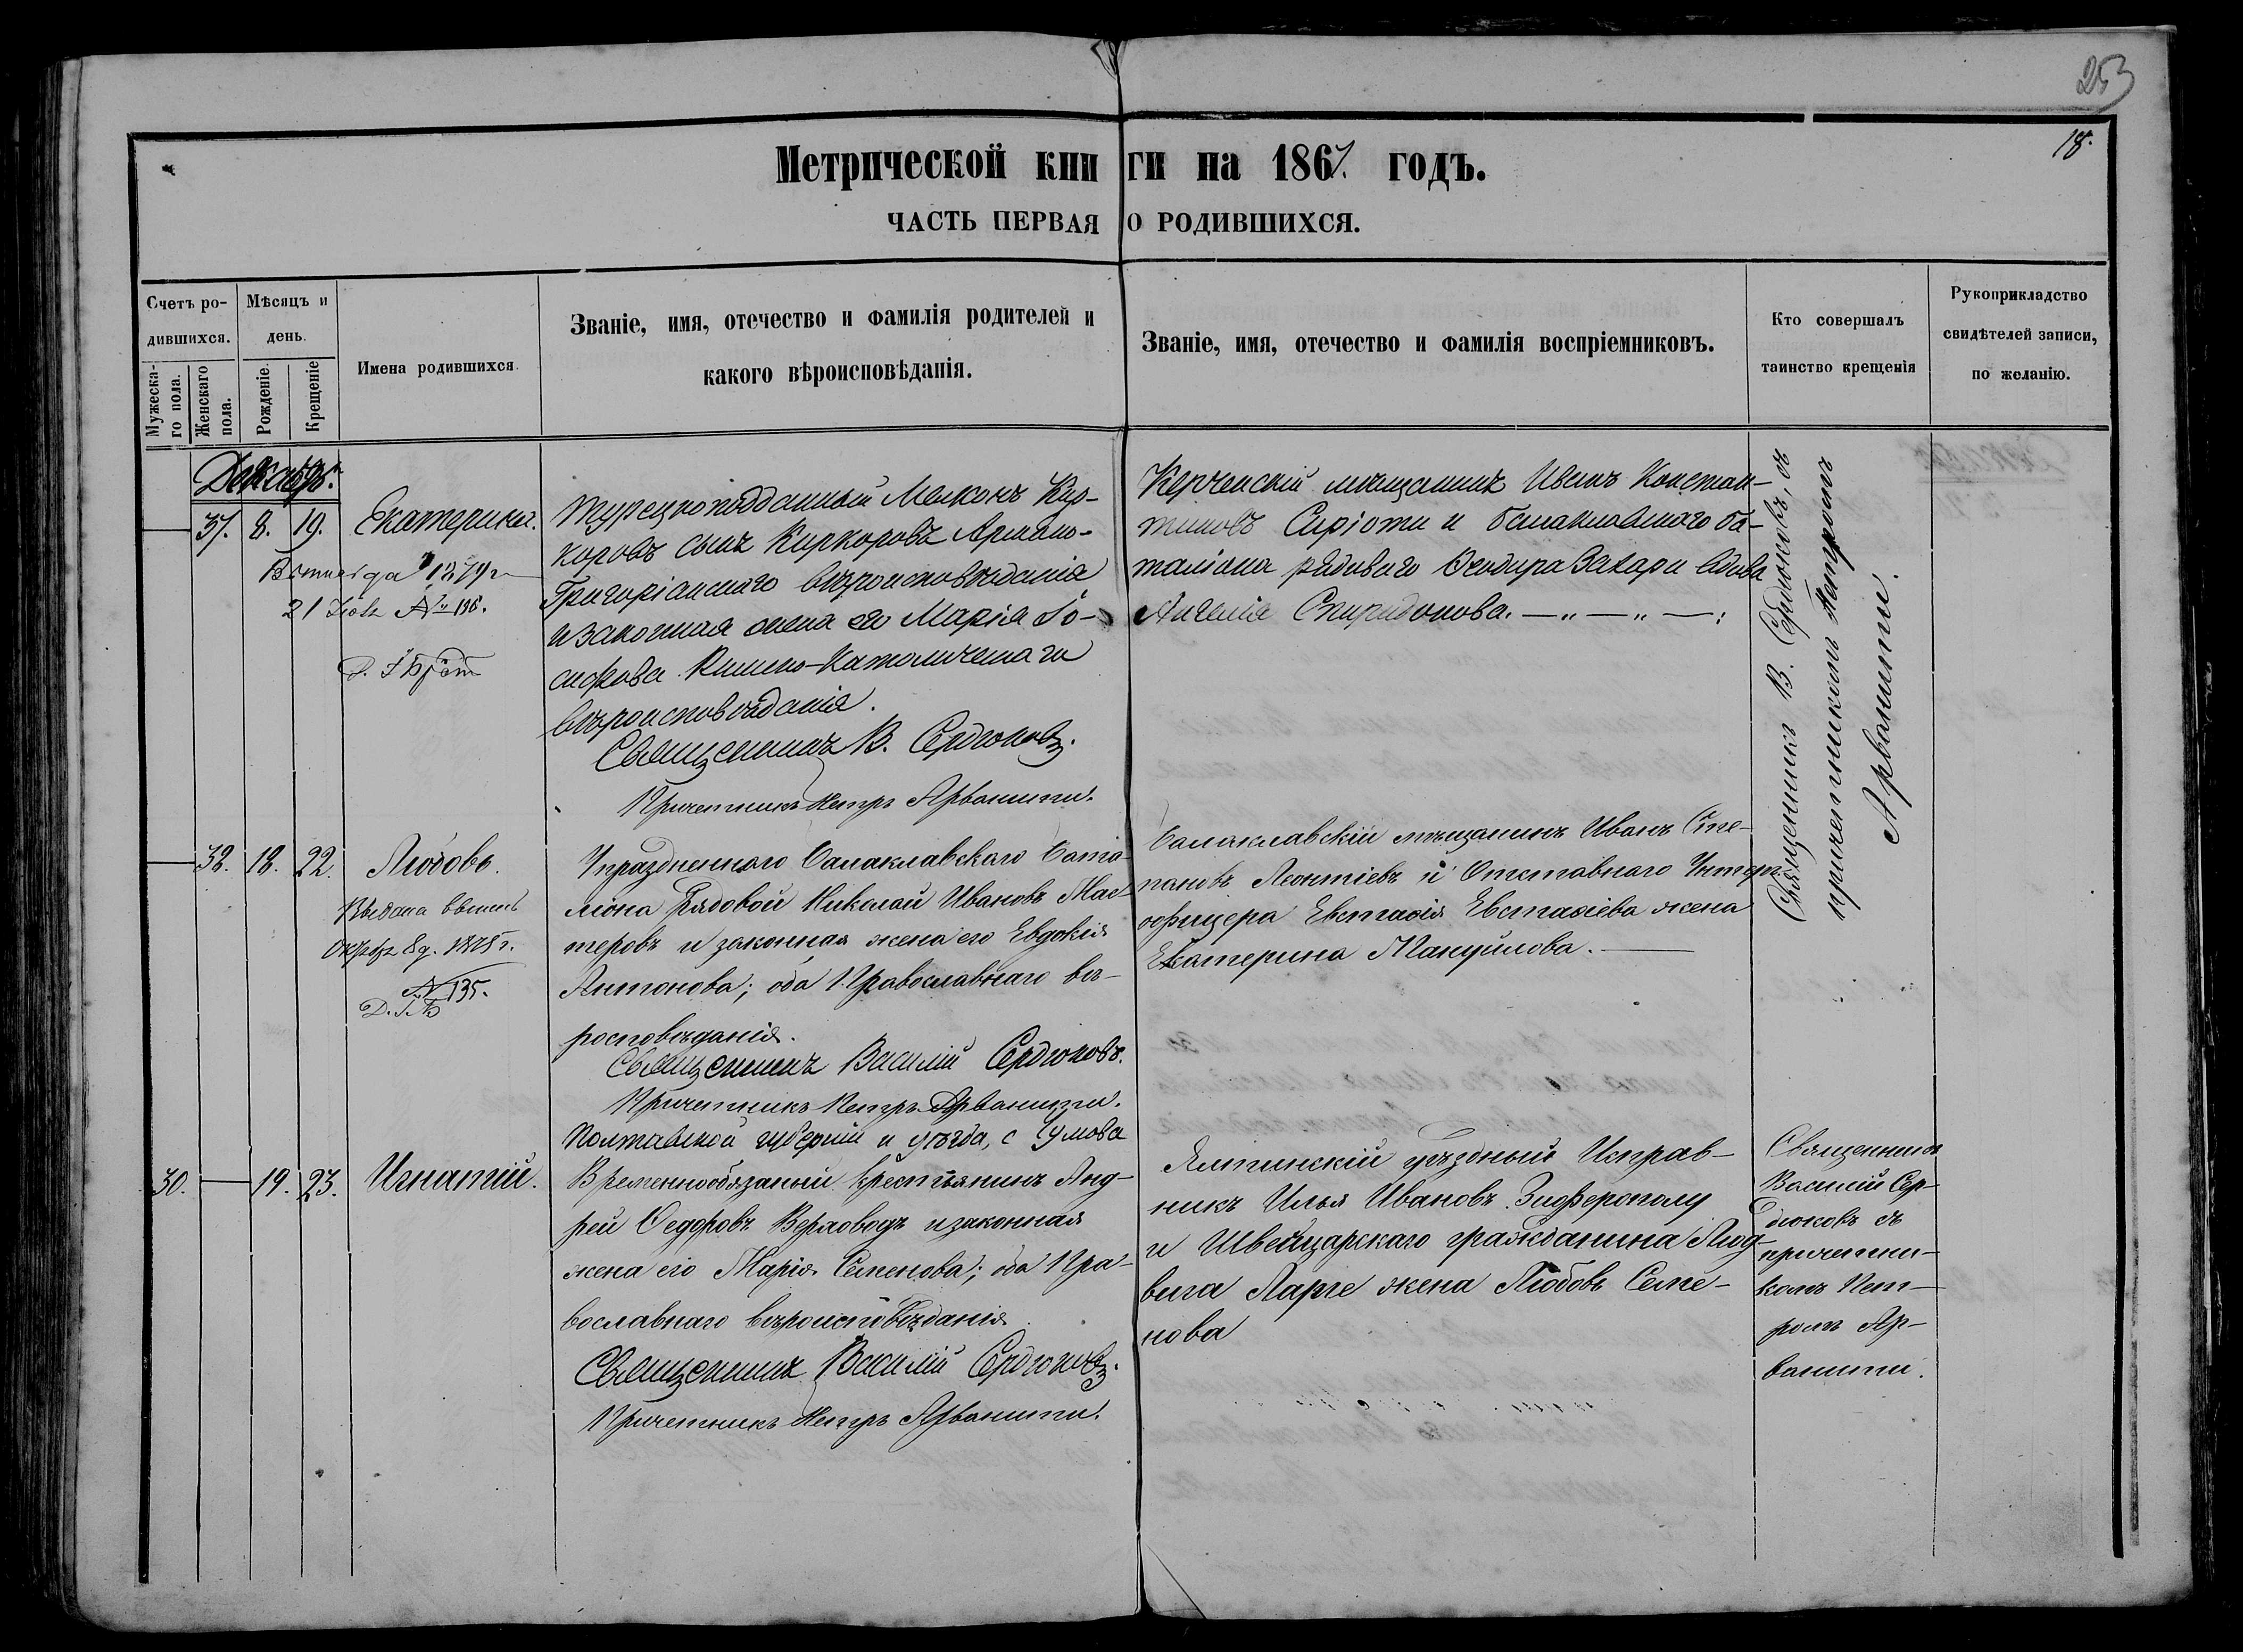 253
18.
Метрической книги на 1867. годъ.
ЧАСТЬ ПЕРВАЯ О РОДИВШИХСЯ.
Счетъ ро-
дившихся.
Мужеска-
го пола.
Женскаго
пола.
Мѣсяцъ и
день.
Рожденіе.
Крещеніе
Имена родившихся.
Званіе, имя, отечество и фамилія родителей и
какого вѣроисповѣданія.
Званіе, имя, отечество и фамилія воспріемниковъ.
Кто совершалъ
таинство крещенія
Рукоприкладство
свидѣтелей записи,
по желанію.
Декабрь.
37. 8. 19. Екатерина.
1879 г
21 № 196.
Турецкоподданный Мелконъ Кир-
коровъ сынъ Киркоровъ Армяно-
Григоріанскаго вѣроисповѣданія
и законная жена его Марія Іо-
сифова Римско-Католическаго
вѣроисповѣданія.
Священникъ В. Сердюковъ.
Причетникъ Петръ Арванити.
Керченскій мѣщанинъ Иванъ Констан-
тиновъ Сиріоти и балаклавскаго ба-
таліона рядоваго Ѳеодора Захари вдова
Ангелія Спиридонова. —"—"—:
Священникъ В. Сердюковъ, съ
причетникомъ Петромъ
Арванити.
32. 18. 22. Любовь.
Выдана
8 д. 1878 г.
№ 135.
Упраздненнаго Балаклавскаго бата-
ліона Рядовой Николай Ивановъ Мас-
теровъ и законная жена его Евдокія
Антонова; оба Православнаго вѣ-
росповѣданія.
Священникъ Василій Сердюковъ.
Причетникъ Петръ Арванити.
Балаклавскій мѣщанинъ Иванъ Сте-
пановъ Леонтіевъ и Отставнаго Унтеръ-
офицера Евстафія Евстафіева жена
Екатерина Мануйлова. —
30. — 19. 23. Игнатій.
Полтавской губерніи и уѣзда, с
Временнообязаный крестьянинъ Анд-
рей Ѳедоровъ Верловодъ и законная
жена его Марія Семенова; оба Пра-
вославнаго вѣроисповѣданія
Священникъ Василій Сердюковъ.
Причетникъ Петръ Арванити.
Ялтинскій уѣздный Исправ-
никъ Илья Ивановъ Зиферополу
и Швейцарскаго гражданина Люд-
вига Ларге жена Любовь Семе-
нова
Священникъ
Василій Сер-
дюковъ съ
причетни-
комъ Пет-
ромъ Ар-
ванити.